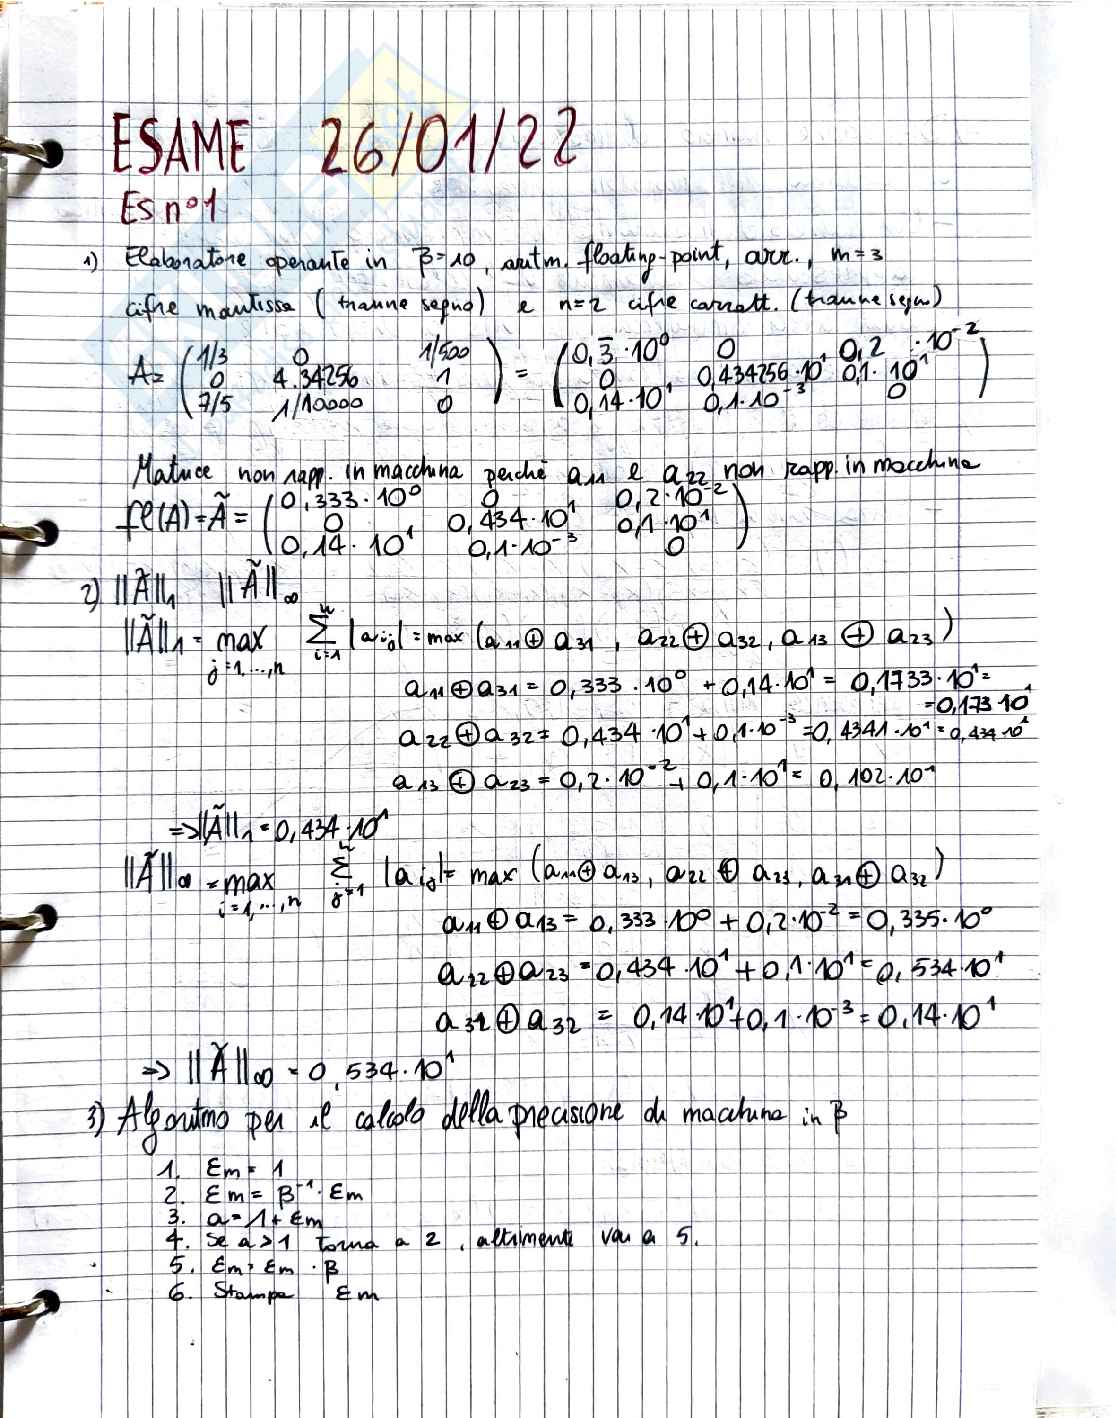 ESAME 26/01/22
ES n°1
1) Elaboratore operante in β=10, aritm. floating-point, arr., m=3
cifre mantissa (tranne segno) e n=2 cifre caratt. (tranne segno)
A= ( 1/3 0 1/500 ) = ( 0,3̅·10⁰ 0 0,2·10⁻² )
( 0 4.34256 1 ) ( 0 0,434256·10¹ 0,1·10¹ )
( 7/5 1/10000 0 ) ( 0,14·10¹ 0,1·10⁻³ 0 )
Matrice non rapp. in macchina perché a₁₁ e a₂₂ non rapp. in macchina
( 0,333·10⁰ 0 0,2·10⁻² )
fl(A)=Ã= ( 0 0,434·10¹ 0,1·10¹ )
( 0,14·10¹ 0,1·10⁻³ 0 )
2) ||Ã||₁ ||Ã||∞
||Ã||₁ = max j=1,...,n Σ i=1 n |aij| = max (a₁₁⊕a₃₁, a₂₂⊕a₃₂, a₁₃⊕a₂₃)
a₁₁⊕a₃₁ = 0,333·10⁰ + 0,14·10¹ = 0,1733·10¹ =
=0,173·10¹
a₂₂⊕a₃₂ = 0,434·10¹+0,1·10⁻³ =0,4341·10¹=0,434·10¹
a₁₃⊕a₂₃ = 0,2·10⁻² + 0,1·10¹ = 0,102·10¹
=>||Ã||₁ = 0,434·10¹
||Ã||∞ = max i=1,...,n Σ j=1 n |aij| = max (a₁₁⊕a₁₃, a₂₂⊕a₂₃, a₃₁⊕a₃₂)
a₁₁⊕a₁₃ = 0,333·10⁰ + 0,2·10⁻² = 0,335·10⁰
a₂₂⊕a₂₃ = 0,434·10¹+0,1·10¹ = 0,534·10¹
a₃₁⊕a₃₂ = 0,14·10¹+0,1·10⁻³ = 0,14·10¹
=> ||Ã||∞ = 0,534·10¹
3) Algoritmo per il calcolo della precisione di macchina in β
1. Em = 1
2. Em = β⁻¹·Em
3. a=1+Em
4. Se a>1 torna a 2, altrimenti vai a 5.
5. Em=Em·β
6. Stampa Em